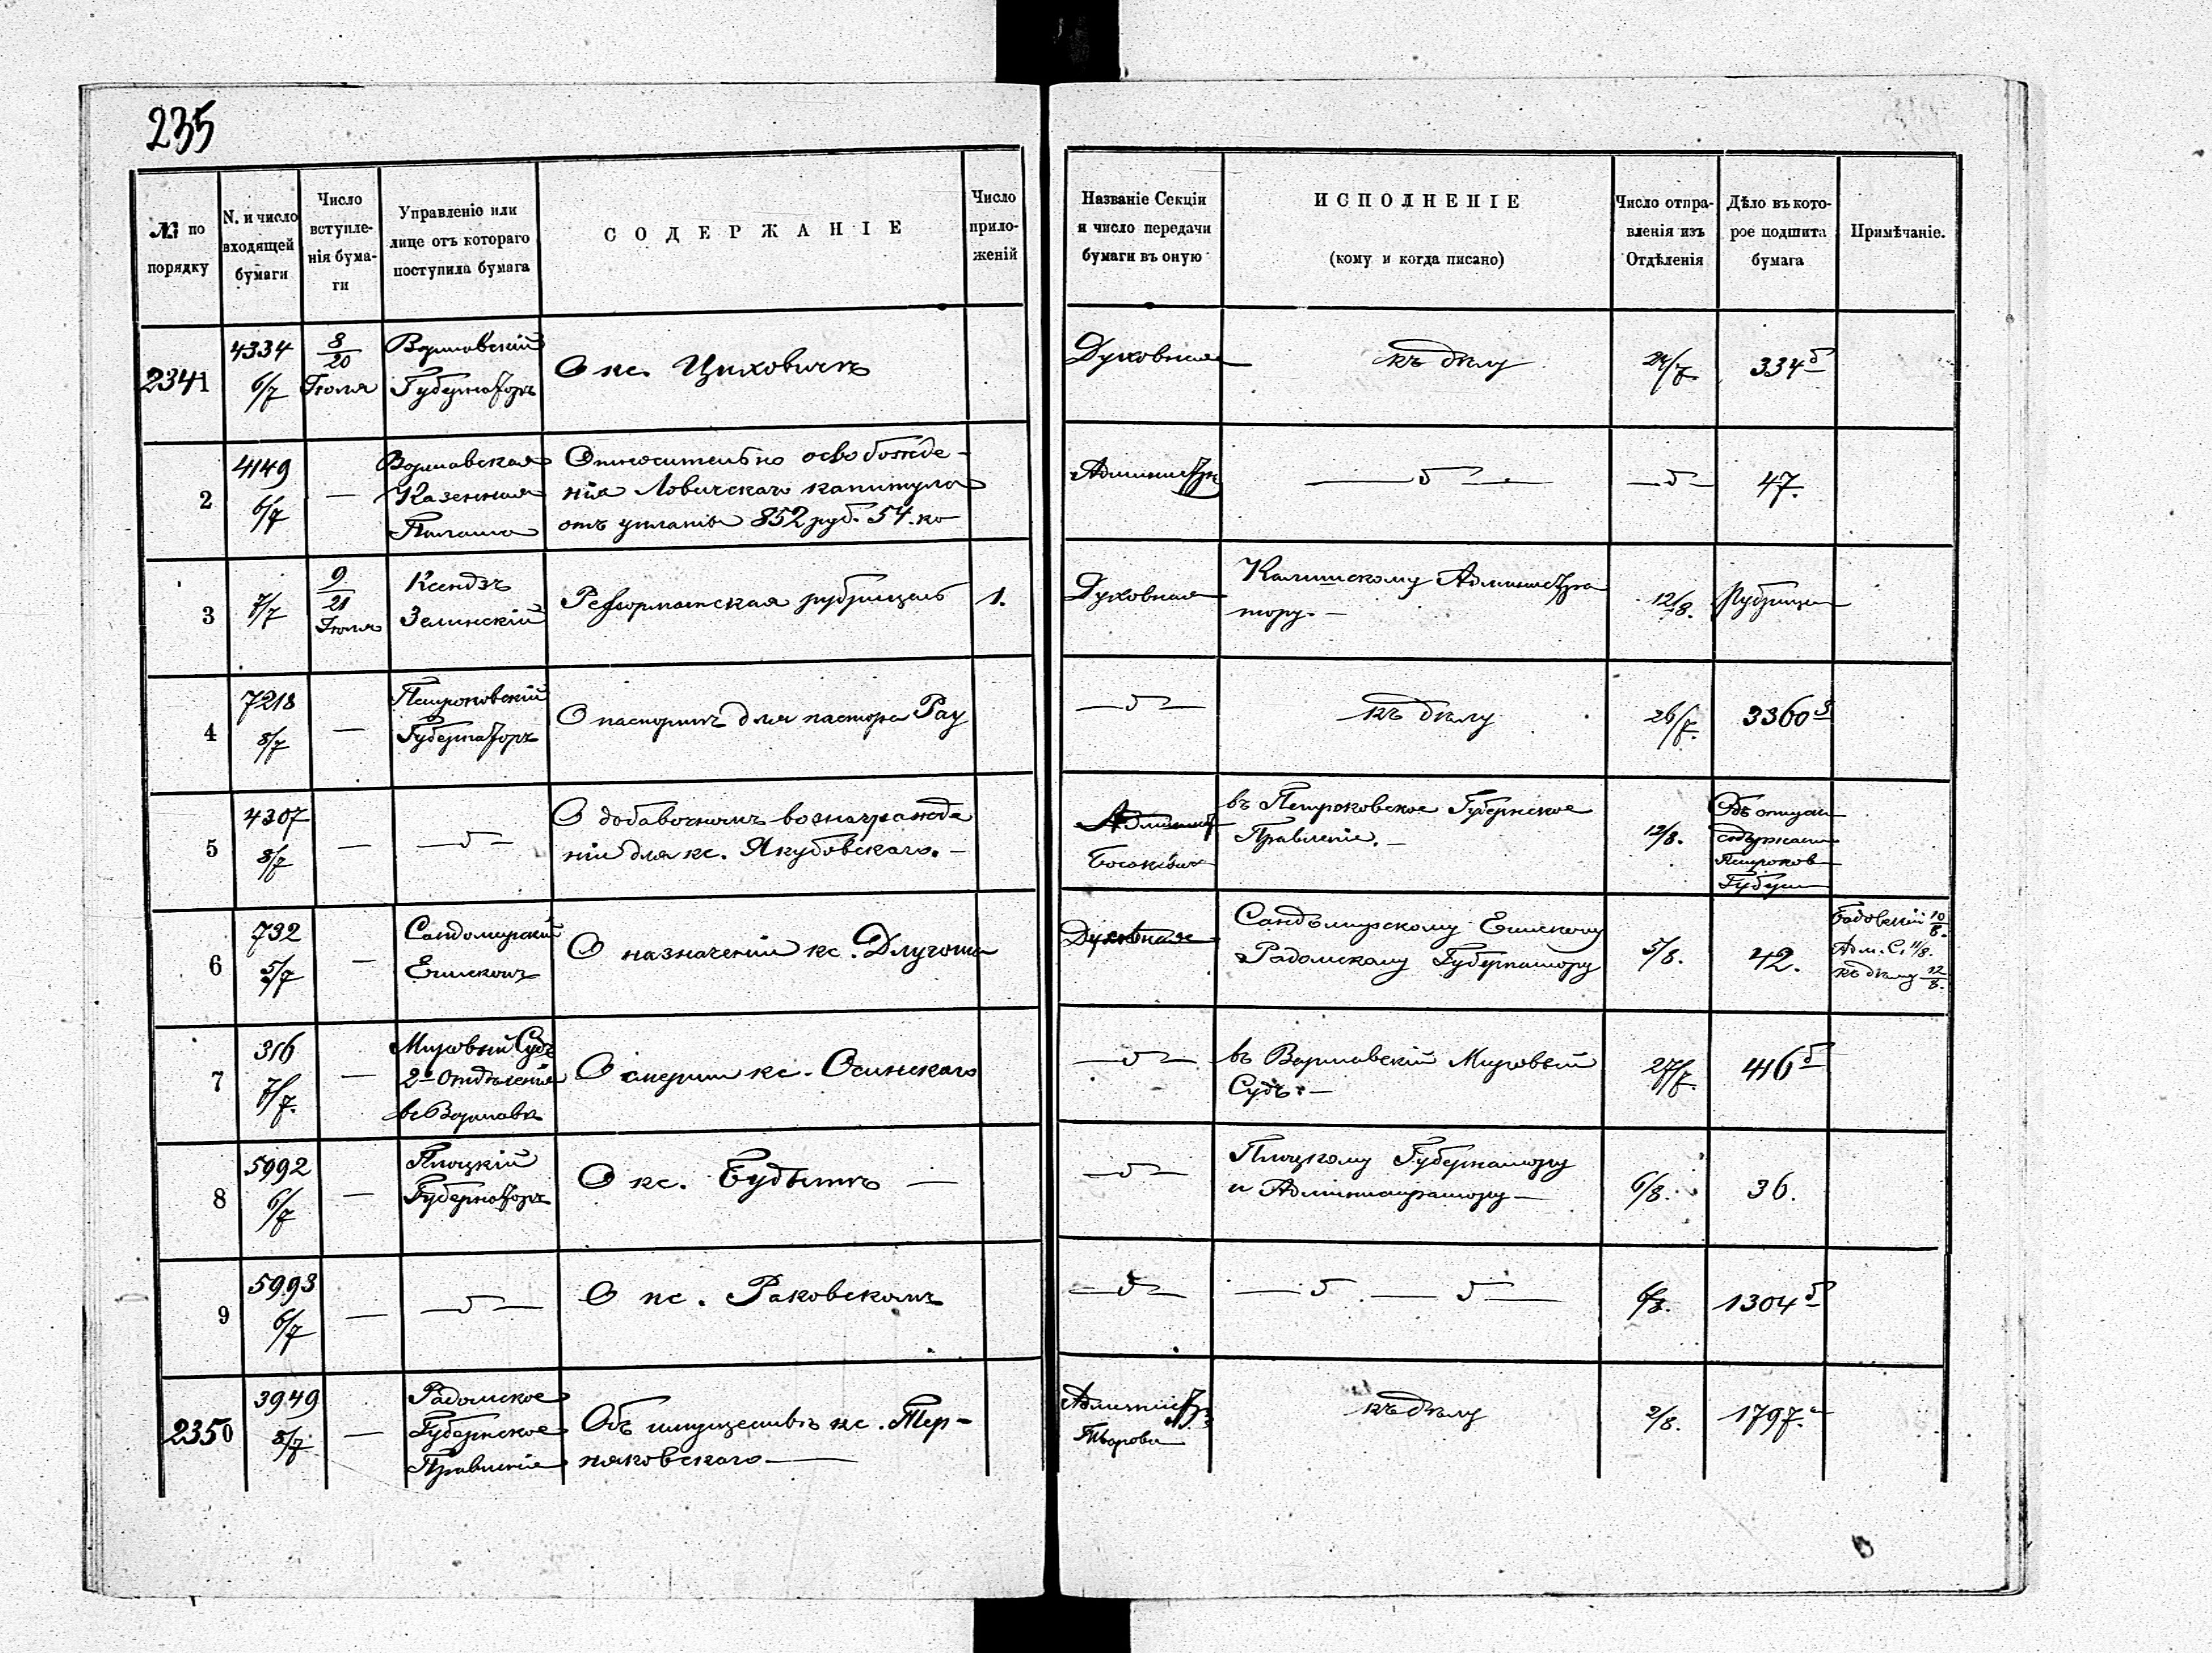 235
№ по порядку
N. и число входящей бумаги
Число вступленія бумаги
Управленіе или лице отъ котораго поступила бумага
СОДЕРЖАНІЕ
Число приложеній
Названіе Секціи и число передачи бумаги въ оную
ИСПОЛНЕНІЕ
(кому и когда писано)
Число отправленія изъ Отдѣленія
Дѣло въ которое подшита бумага
Примѣчаніе.
2341
4334
6/7
8/20 Іюля
Варшавскій
Губернаторъ
О кс. Циховичѣ
Духовная
къ дѣлу
24/7
334 б
2
4149
6/7
—
Варшавская
Казенная
Палата
Относительно освобожде-
нія Ловичскаго капитула
отъ уплаты 852 руб. 54. ко
Администр
— 5 —
— 5 —
47.
3
7/7
9/21 Іюля
Ксендзъ
Зелинскій
Реформатская рубрицель
1.
Духовная
Калишскому Администра
тору. —
12/8.
Рубрицели
4
7218
8/7
—
Петроковскій
Губернаторъ
О паспортѣ для пастора Рау
— 5 —
къ дѣлу
26/7.
3360
5
4307
8/7
—
— 5 —
О добавочномъ вознагражде
ніи для кс. Якубовскаго. —
Админист
въ Петроковское Губернское
Правленіе. —
12/8.
Объ отпускѣ
содержанія
Петроков
Губерн
6
732
5/7
—
Сандомирскій
Епископъ
О назначеніи кс. Длугоша
Духовная
Сандомирскому Епископу
Радомскому Губернатору
5/8.
42.
10/8.
Адм. С. 11/8.
къ дѣлу 12/8.
7
316
7/7.
—
Мировый Судъ
2го Отдѣленія
въ Варшавѣ
О смерти кс. Осинскаго
— 5 —
въ Варшавскій Мировый
Судъ. —
27/7.
416 б
8
5992
6/7
—
Плоцкій
Губернаторъ
О кс. Будытѣ —
— 5 —
Плоцкому Губернатору
и Администратору —
6/8.
36.
9
5993
6/7
—
— 5 —
О кс. Раковскомъ
— 5 —
— 5 — 5 —
6/8.
1304 б
2350
3949
8/7.
—
Радомское
Губернское
Правленіе
Объ имуществѣ кс. Тер-
няковскаго —
Администр
къ дѣлу
2/8.
1797. а